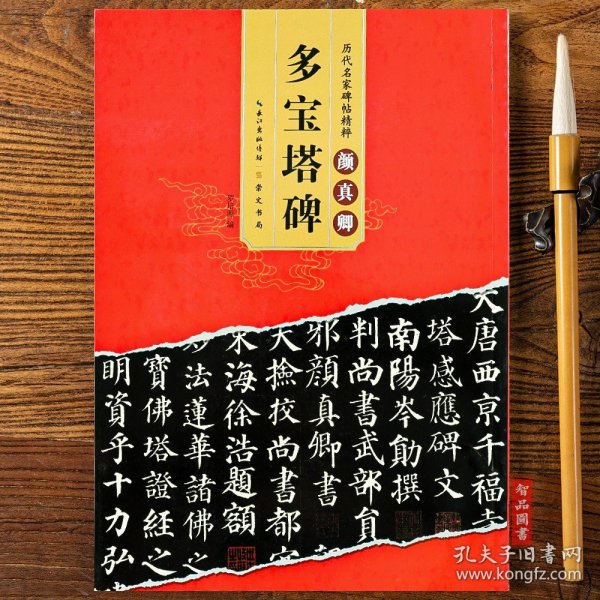 历代名家碑帖精粹
颜真卿
多宝塔碑
长江出版传媒
崇文书局
大唐西京千福寺
塔感應碑文
南陽岑勛撰
判尚書武部員
邪顏真卿書
大撿挍尚書都官
東海徐浩題額
妙法蓮華諸佛之
寶佛塔證經之
明資乎十力弘
智品圖書
孔夫子旧书网
www.kongfz.com